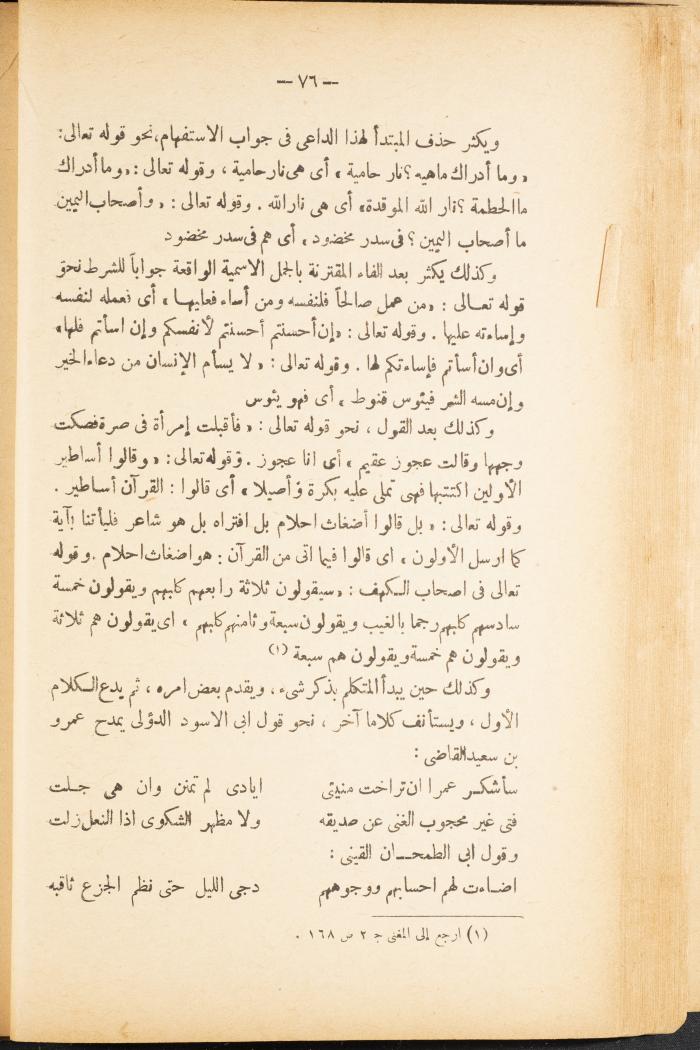 — ٧٦ —
ويكثر حذف المبتدأ لهذا الداعى فى جواب الاستفهام، نحو قوله تعالى:
« وما أدراك ماهيه ؟ نار حامية » أى هى نار حامية ، وقوله تعالى : « وما أدراك
ما الحطمة ؟ نار الله الموقدة» أى هى نار الله . وقوله تعالى : « وأصحاب اليمين
ما أصحاب اليمين ؟ فى سدر مخضود » أى هم فى سدر مخضود
وكذلك يكثر بعد الفاء المقترنة بالجمل الاسمية الواقعة جواباً للشرط نحو
قوله تعـالى : «من عمل صالحاً فلنفسه ومن أساء فعليهـا » أى فعمله لنفسه
وإساءته عليها . وقوله تعالى : «إن أحسنتم أحسنتم لأنفسكم وإن اسأتم فلها»
أى وان أسأتم فإساءتكم لها . وقوله تعالى : « لا يسأم الإنسان من دعاء الخير
وإن مسه الشر فيئوس قنوط » أى فهو يئوس
وكذلك بعد القول ، نحو قوله تعالى : « فأقبلت إمرأة فى صرة فصكت
وجهها وقالت عجوز عقيم » أى انا عجوز . وقوله تعالى : « وقالوا أساطير
الأولين اكتتبها فهى تملى عليه بكرة وأصيلا » أى قالوا : القرآن أساطير .
وقوله تعالى : « بل قالوا أضغاث احلام بل افتراه بل هو شاعر فليأتنا بآية
كما ارسل الأولون » اى قالوا فيما اتى من القرآن : هو اضغاث احلام . وقوله
تعالى فى اصحاب الـكهف : «سيقولون ثلاثة رابعهم كلبهم ويقولون خمسة
سادسهم كلبهم رجما بالغيب ويقولون سبعة وثامنهم كلبهم » اى يقولون هم ثلاثة
ويقولون هم خمسة ويقولون هم سبعة (١)
وكذلك حين يبدأ المتكلم بذكر شىء ، ويقدم بعض امره ، ثم يدع الـكلام
الأول ، ويستأنف كلاما آخر ، نحو قول ابى الاسود الدؤلى يمدح عمرو
بن سعيد القاضى :
سأشكـر عمرا ان تراخت منيتى ايادى لم تمنن وان هى جـلت
فتى غير محجوب الغنى عن صديقه ولا مظهر الشكوى اذا النعل زلت
وقول ابى الطمحـان القينى :
اضـاءت لهم احسابهم ووجوههم دجى الليل حتى نظم الجزع ثاقبه
(١) ارجع إلى المغنى ج ٢ ص ١٦٨ .